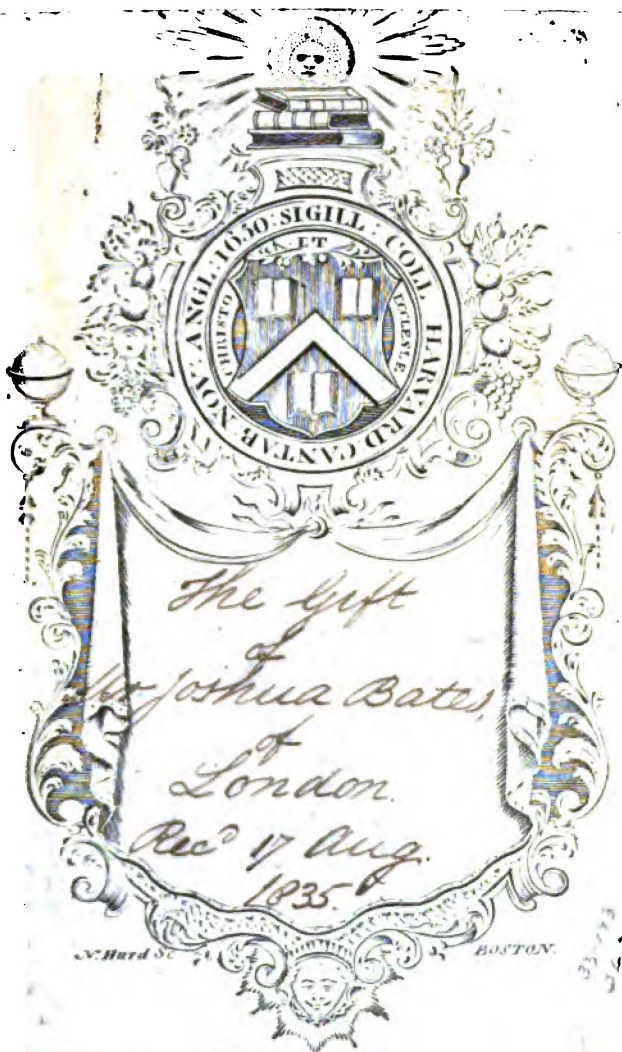 SIGILL : COLL HARVARD CANTAB NOV ANGL : 1650 :
CHRISTO ET ECCLESIÆ
The Gift
of
Mr Joshua Bates,
of
London.
Recd 17 Aug.
1835.
N. Hurd
BOSTON.